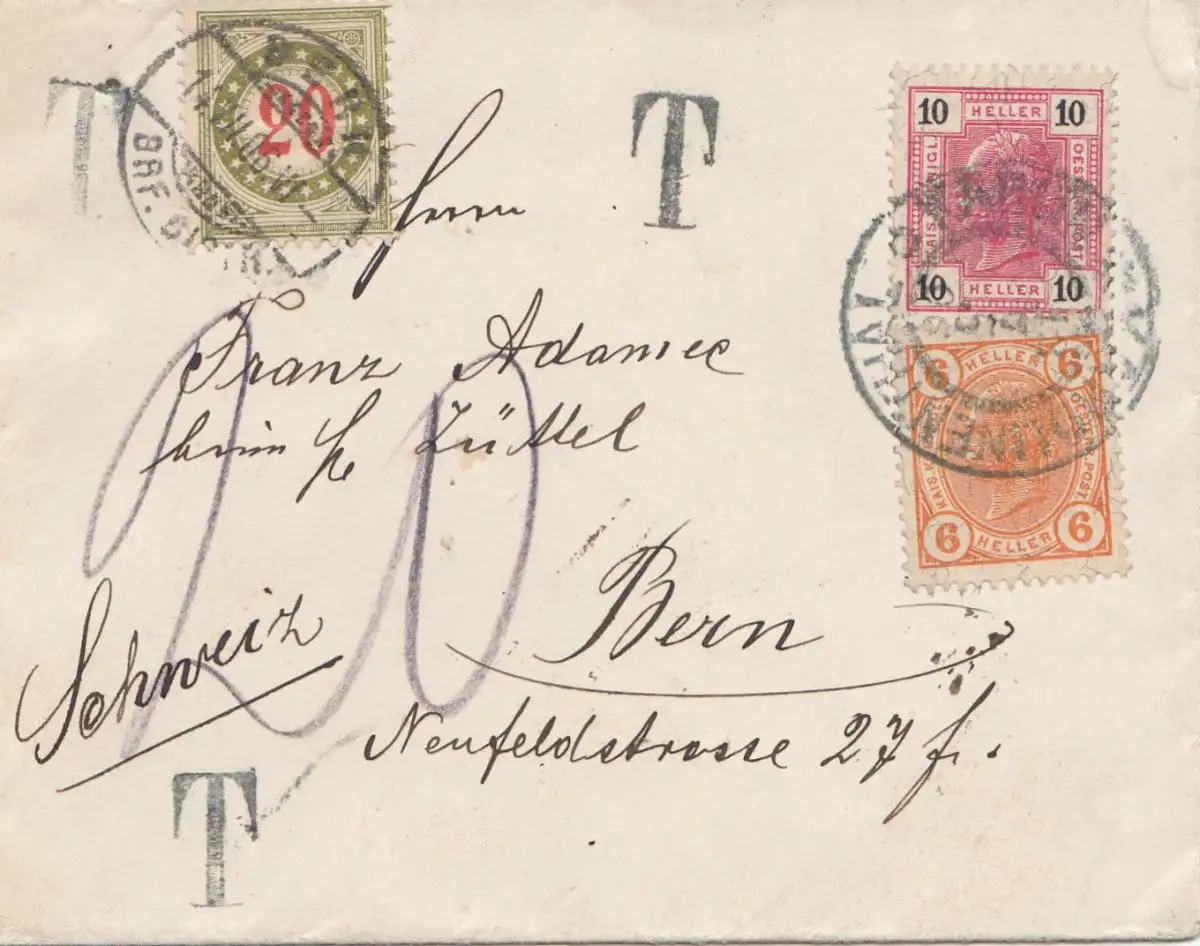 T
20
BRF. DISTR.
T
10 HELLER 10
KAIS. KÖNIGL.
OESTERR. POST.
10 HELLER 10
6 HELLER 6
KAIS. K
OESTERR. POST.
6 HELLER 6
Herrn
Franz Adamec
beim H Züttel
20
Bern
Schweiz
Neufeldstrasse 27 f.
T